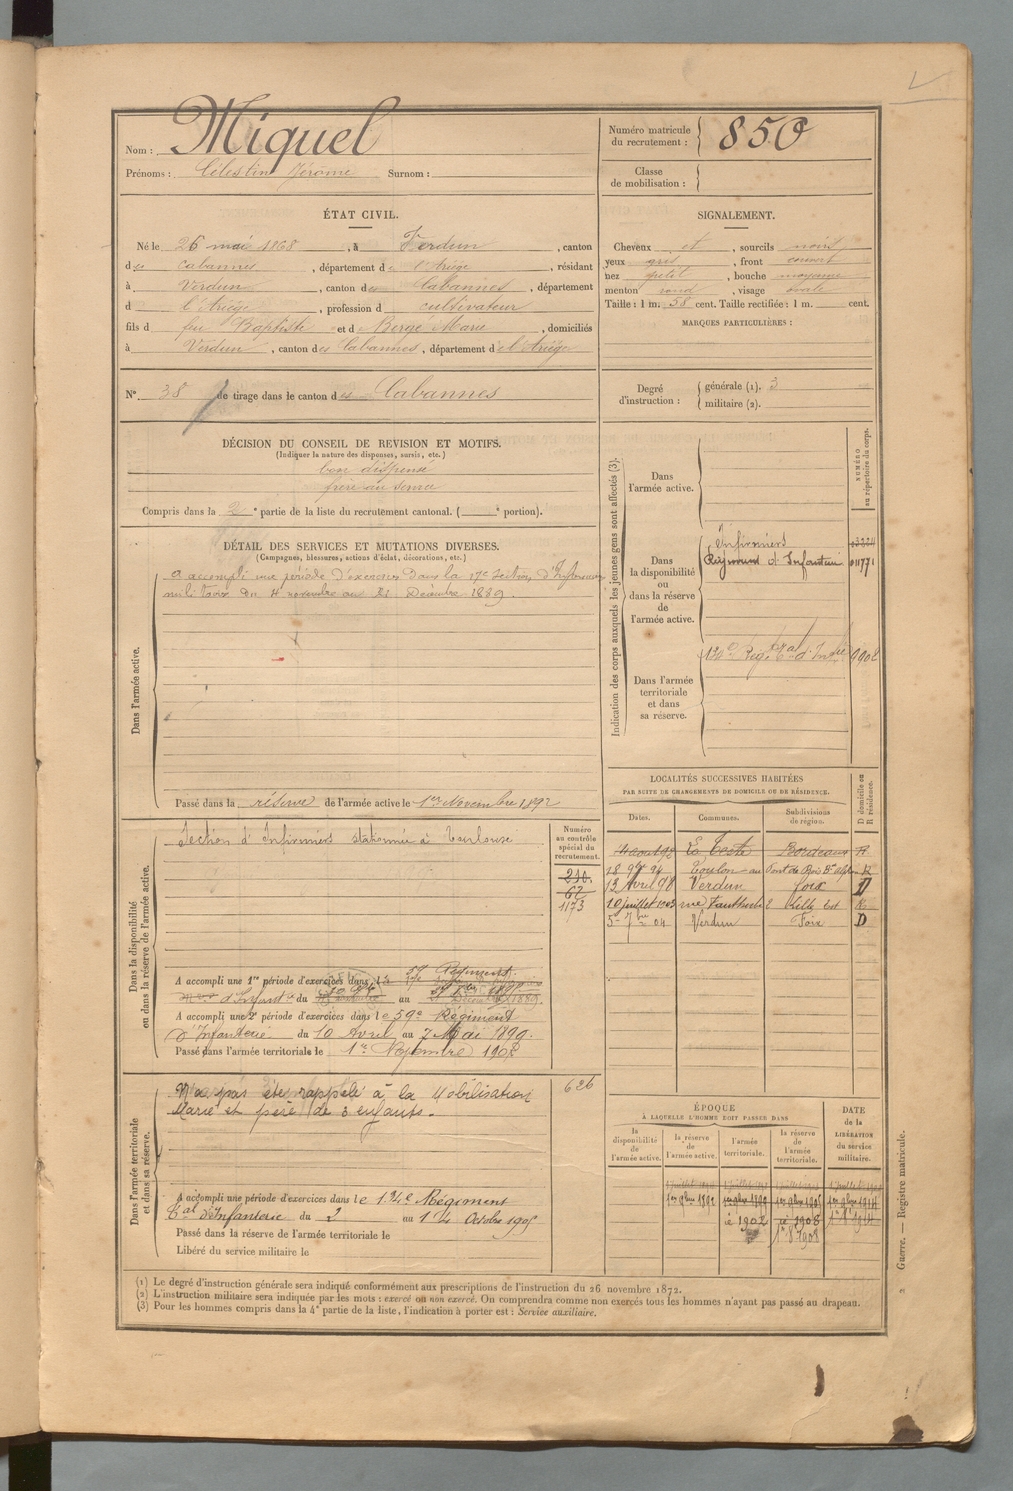 Nom : Miquel
Prénoms : Célestin Jérôme Surnom :
Numéro matricule du recrutement : 850
Classe de mobilisation :
ÉTAT CIVIL.
Né le 26 mai 1868, à Verdun, canton
des Cabannes, département de l'Ariège, résidant
à Verdun, canton des Cabannes, département
d l'Ariège, profession d cultivateur
fils d feu Baptiste et d Berge Marie, domiciliés
à Verdun, canton des Cabannes, département de l'Ariège
SIGNALEMENT.
Cheveux et, sourcils noirs
yeux gris, front couvert
nez petit, bouche moyenne
menton rond, visage ovale
Taille : 1 m. 58 cent. Taille rectifiée : 1 m. cent.
MARQUES PARTICULIÈRES :
N° 38 de tirage dans le canton des Cabannes
Degré d'instruction : générale (1). 3
militaire (2).
DÉCISION DU CONSEIL DE REVISION ET MOTIFS.
(Indiquer la nature des dispenses, sursis, etc.)
bon dispensé
frère au service
Compris dans la 2e partie de la liste du recrutement cantonal. ( e portion).
DÉTAIL DES SERVICES ET MUTATIONS DIVERSES.
(Campagnes, blessures, actions d'éclat, décorations, etc.)
Dans l'armée active.
a accompli une période d'exercices dans la 17e Section d'Infirmiers
militaires du 4 novembre au Décembre 1889.
Passé dans la réserve de l'armée active le 1er Novembre 1892
Indication des corps auxquels les jeunes gens sont affectés (3).
NUMÉRO au répertoire du corps.
Dans l'armée active.
Dans la disponibilité ou dans la réserve de l'armée active.
Infirmiers
Régiment d'Infanterie 011771
Dans l'armée territoriale et dans sa réserve.
Dans la disponibilité ou dans la réserve de l'armée active.
Section d'Infirmiers stationnée à Toulouse
Numéro au contrôle spécial du recrutement.
210.
67
1173
A accompli une 1re période d'exercices dans le 59e Régiment
d'Infanterie du au
A accompli une 2e période d'exercices dans le 59e Régiment
d'Infanterie du 10 Avril au 7 Mai 1899.
Passé dans l'armée territoriale le 1er Novembre 1902
LOCALITÉS SUCCESSIVES HABITÉES
PAR SUITE DE CHANGEMENTS DE DOMICILE OU DE RÉSIDENCE.
Dates. Communes. Subdivisions de région. D domicile ou R résidence.
La Teste Bordeaux R
Toulon R
13 Avril 98 Verdun Foix D
10 juillet 1903 Lille R
5 7bre 04 Verdun Foix D
Dans l'armée territoriale et dans sa réserve.
N'a pas été rappelé à la Mobilisation 626
Marié et père de 3 enfants.
A accompli une période d'exercices dans le Régiment
d'Infanterie du 2 au 14 Octobre 1905
Passé dans la réserve de l'armée territoriale le
Libéré du service militaire le
ÉPOQUE
À LAQUELLE L'HOMME DOIT PASSER DANS
la disponibilité de l'armée active. la réserve de l'armée active. l'armée territoriale. la réserve de l'armée territoriale.
DATE de la LIBÉRATION du service militaire.
1er 9bre 1892 1er 9bre 1899 1er 9bre 1905 1er 9bre 1914
1902 1908
(1) Le degré d'instruction générale sera indiqué conformément aux prescriptions de l'instruction du 26 novembre 1872.
(2) L'instruction militaire sera indiquée par les mots : exercé ou non exercé. On comprendra comme non exercés tous les hommes n'ayant pas passé au drapeau.
(3) Pour les hommes compris dans la 4e partie de la liste, l'indication à porter est : Service auxiliaire.
Guerre. — Registre matricule. 2